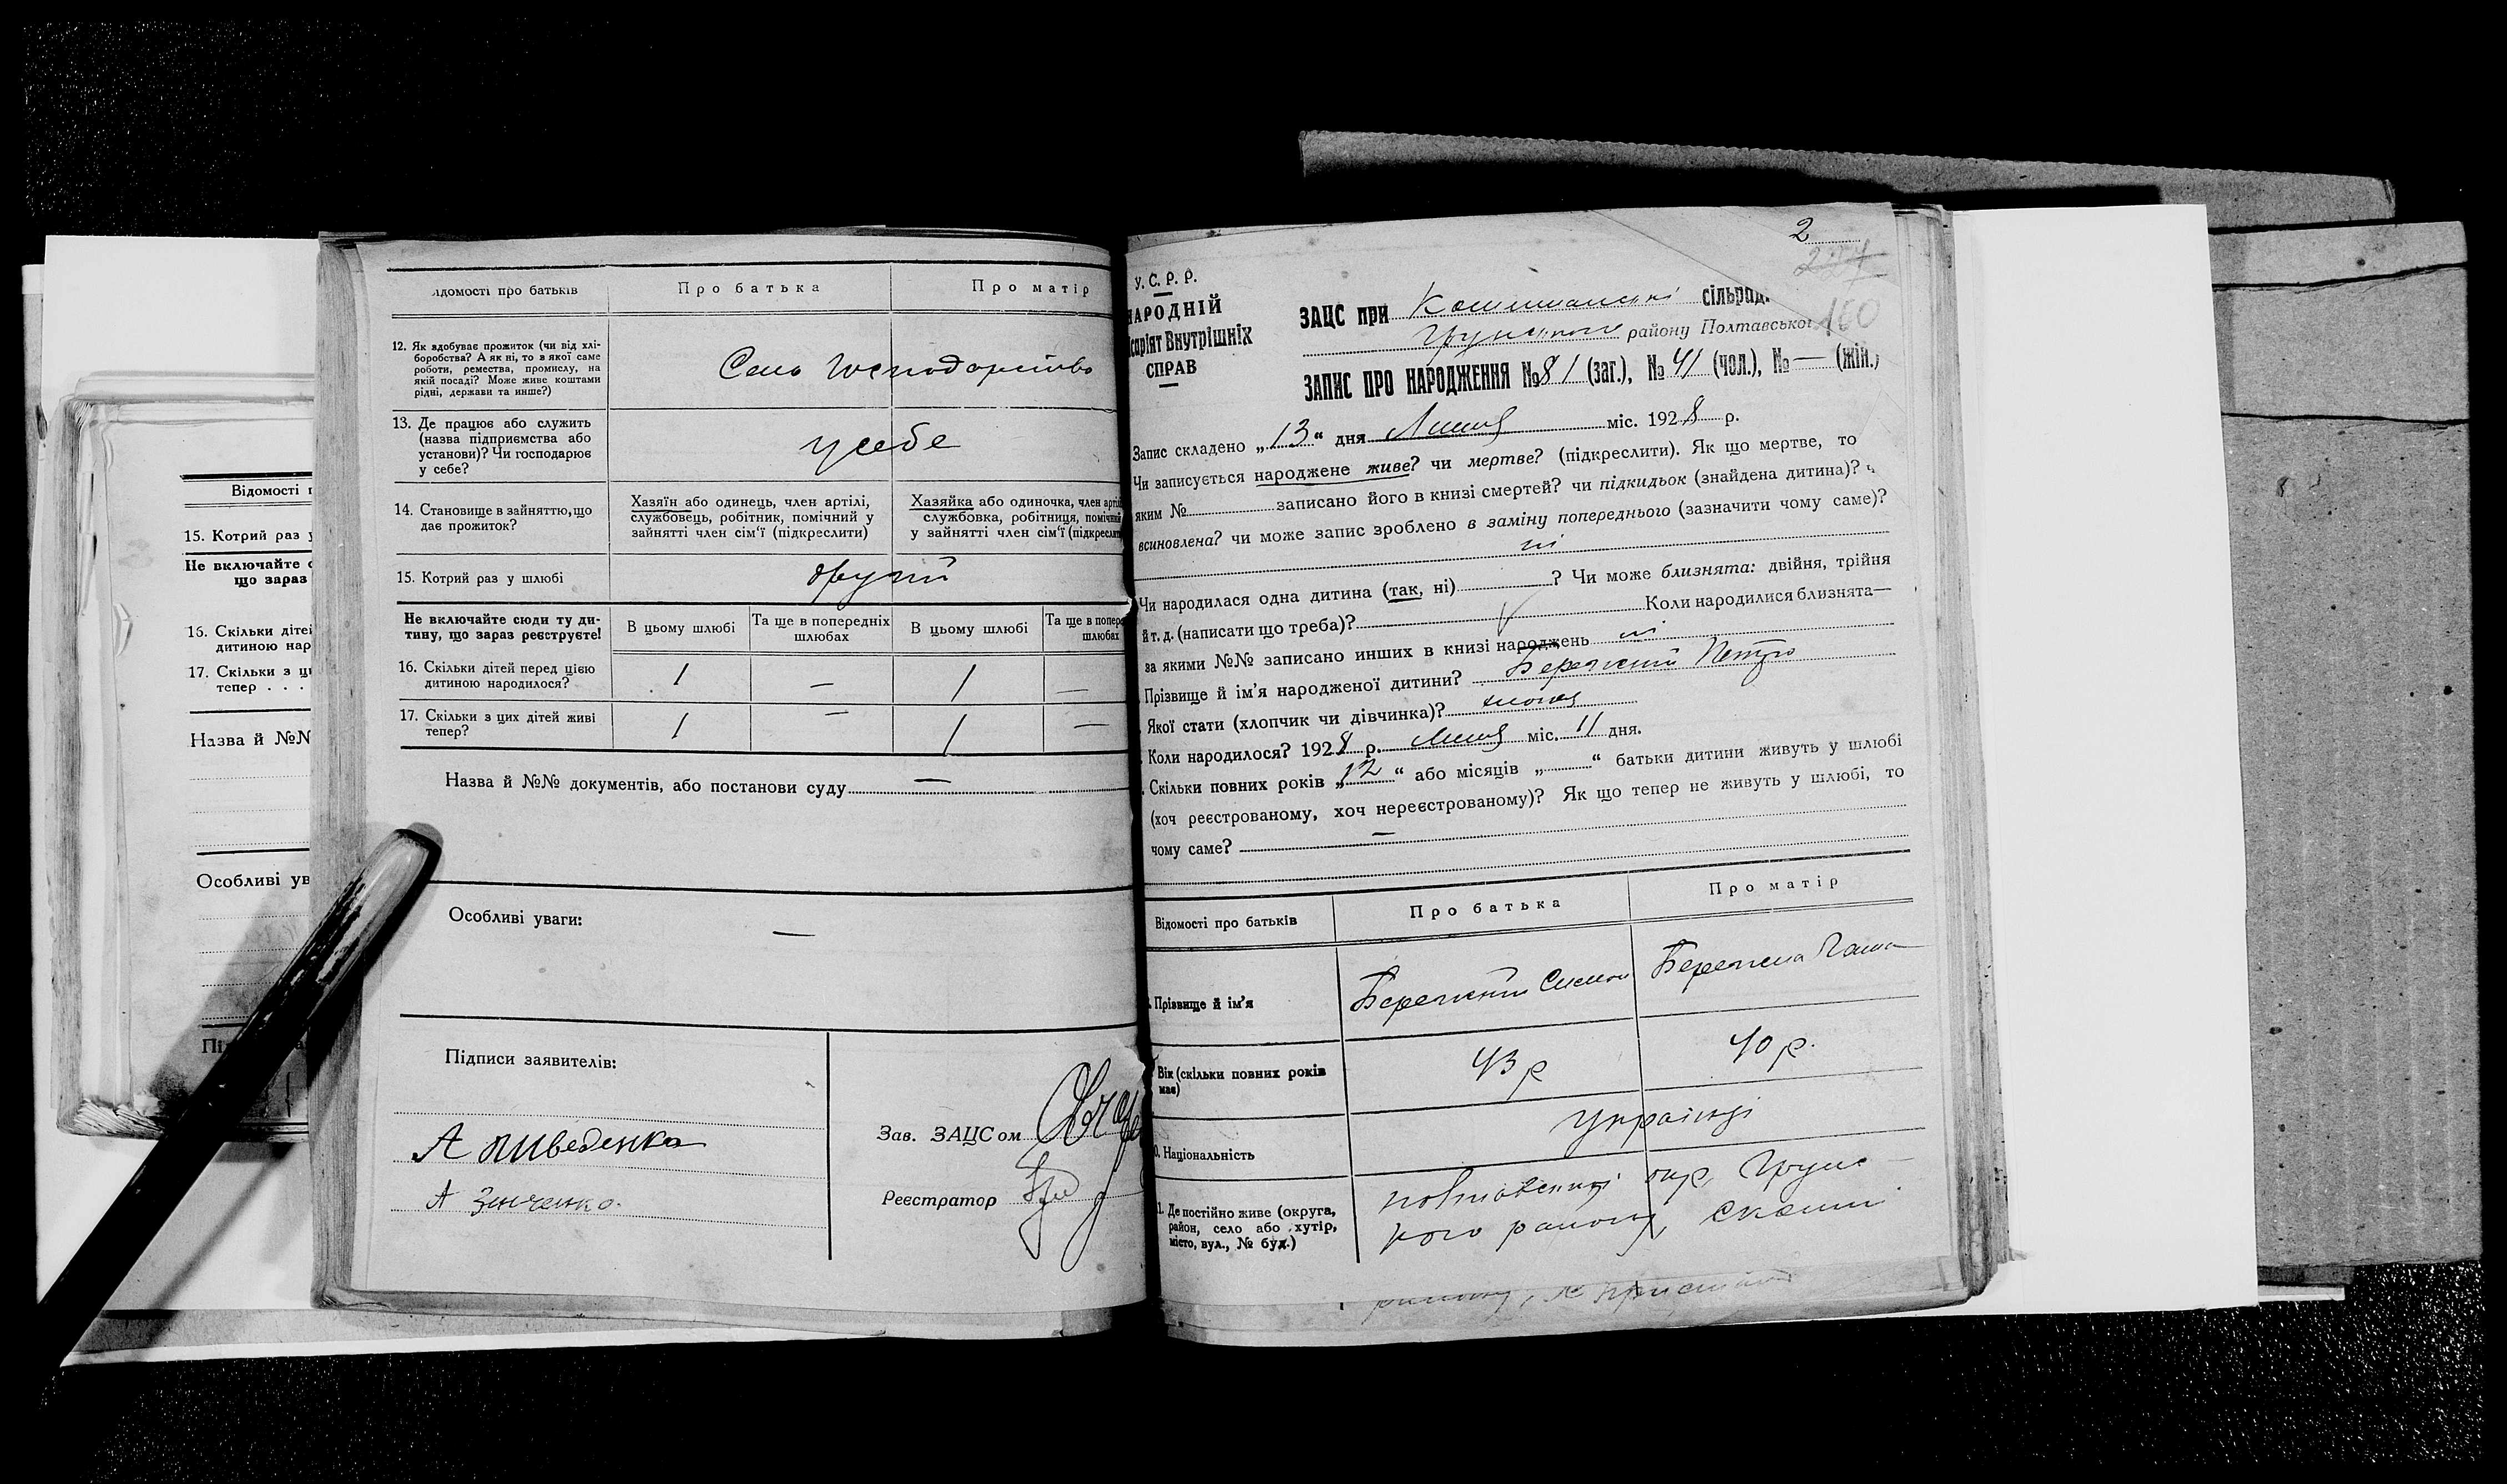 Відомості п
15. Котрий раз у
Не включайте с
що зараз
16. Скільки дітей
дитиною нар
17. Скільки з ці
тепер . . .
Назва й №№
Особливі ув
Пі
ідомості про батьків
Про батька
Про матір
12. Як здобуває прожиток (чи від хлі-
боробства? А як ні, то в якої саме
роботи, ремества, промислу, на
якій посаді? Може живе коштами
рідні, держави та инше?)
Сель Господарство
13. Де працює або служить
(назва підприємства або
установи)? Чи господарює
у себе?
у себе
14. Становище в зайняттю, що
дає прожиток?
Хазяїн або одинець, член артілі,
службовець, робітник, помічний у
зайнятті член сім'ї (підкреслити)
Хазяйка або одиночка, член артіл
службовка, робітниця, помічний
у зайнятті член сім'ї (підкреслити
15. Котрий раз у шлюбі
другий
Не включайте сюди ту ди-
тину, що зараз реєструєте!
В цьому шлюбі
Та ще в попередніх
шлюбах
В цьому шлюбі
Та ще в попере
шлюбах
16. Скільки дітей перед цією
дитиною народилося?
1 — 1 —
17. Скільки з цих дітей живі
тепер?
1 — 1 —
Назва й №№ документів, або постанови суду —
Особливі уваги:
—
Підписи заявителів:
А Пиведенко
А Зинченко.
Зав. ЗАЦСом
Реєстратор
2
160
У. С. Р. Р.
НАРОДНІЙ
ісаріят Внутрішніх
СПРАВ
ЗАЦС при сільрад.
Грунського району Полтавської
ЗАПИС ПРО НАРОДЖЕННЯ № 81 (заг.), № 41 (чол.), № — (жін.)
Запис складено „13“ дня Липня міс. 1928 р.
Чи записується народжене живе? чи мертве? (підкреслити). Як що мертве, то
яким № записано його в книзі смертей? чи підкидьок (знайдена дитина)? ч
всиновлена? чи може запис зроблено в заміну попереднього (зазначити чому саме)?
ні
Чи народилася одна дитина (так, ні) ? Чи може близнята: двійня, трійня
й т. д. (написати що треба)? Коли народилися близнята—
за якими №№ записано инших в книзі народжень ні
Прізвище й ім'я народженої дитини? Бережний Петро
Якої стати (хлопчик чи дівчинка)?
Коли народилось? 1928 р. Липня міс. 11 дня.
Скільки повних років „12“ або місяців „ “ батьки дитини живуть у шлюбі
(хоч реєстрованому, хоч нереєстрованому)? Як що тепер не живуть у шлюбі, то
чому саме? —
Відомості про батьків
Про батька
Про матір
Прізвище й ім'я
Бережний Симон
Бережна Паша
Вік (скільки повних років
має)
43 р
40 р.
0. Національність
Українці
1. Де постійно живе (округа,
район, село або хутір,
місто, вул., № буд.)
Полтавської окр, Грунс-
кого району,
району,